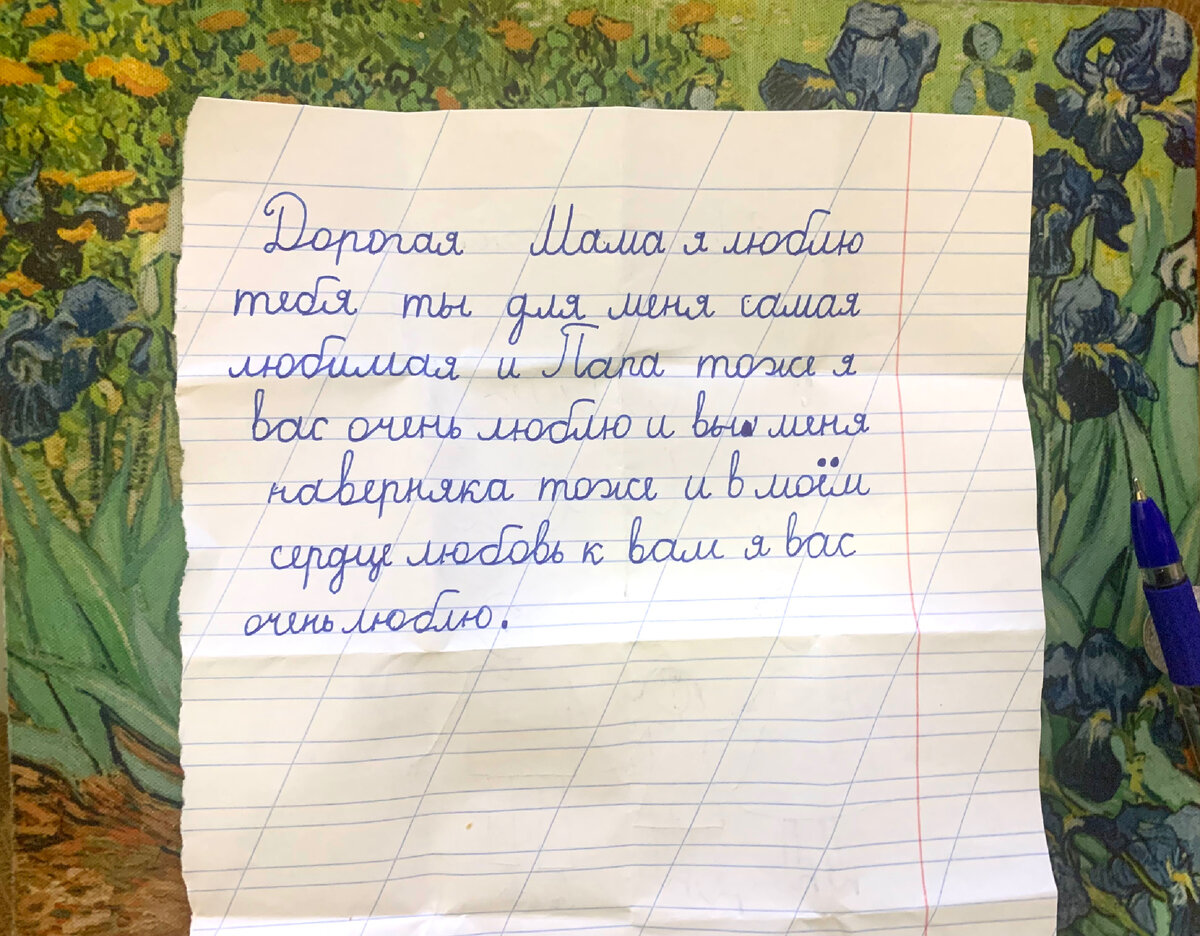 Дорогая Мама я люблю
тебя ты для меня самая
любимая и Папа тоже я
вас очень люблю и вы меня
наверняка тоже и в моём
сердце любовь к вам я вас
очень люблю.